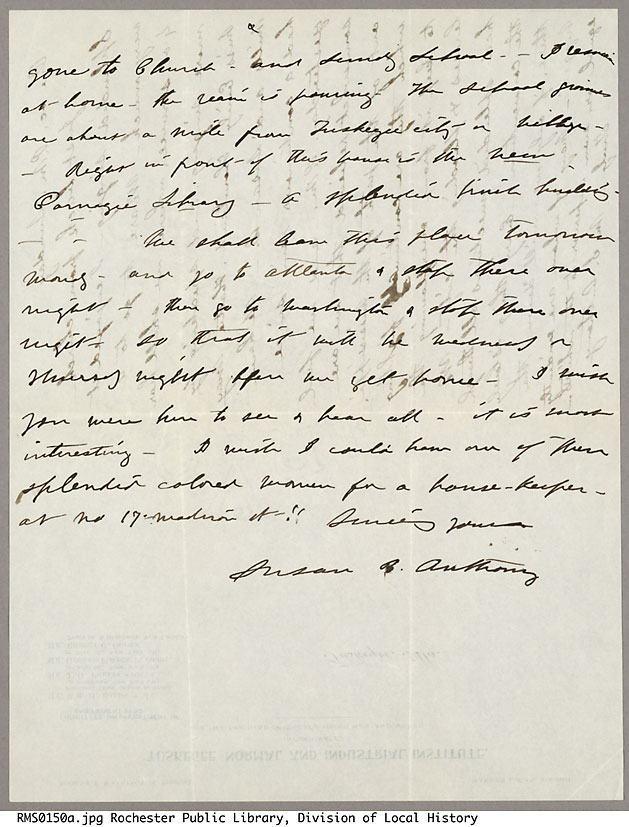 2
gone to Church - and Sunday School - I remain
at home - the rain is pouring The School grounds
are about a mile from Tuskegee city or village -
- Right in front of this house is the new
Carnegie Library - a splendid finish building -
- - We shall leave this place tomorrow
morng - and go to Atlanta & stop there over
night - then go to Washington & stop there over
night - so that it will be Wednesday or
Thursday night before we get home - I wish
you were here to see & hear all - it is most
interesting - I wish I could have one of these
splendid colored women for a house-keeper -
at no 17 Madison st!! Sincerely yours
Susan B. Anthony
TUSKEGEE NORMAL AND INDUSTRIAL INSTITUTE
RMS0150a.jpg Rochester Public Library, Division of Local History